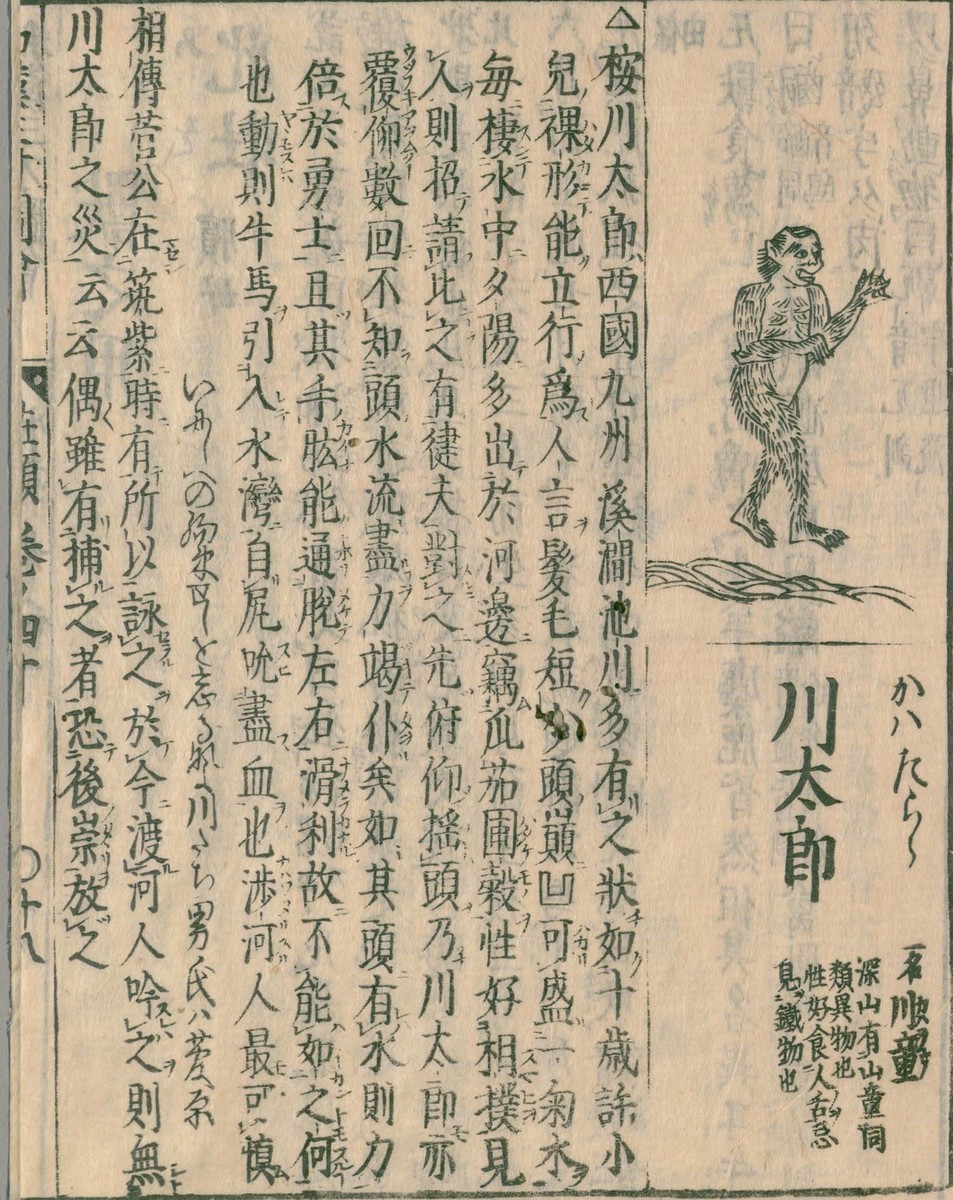 かハたらう
川太郎
一名川童
深山有山童同
類異物也
性好食人舌忌
見鐵物也
△桉川太郎西國九州溪澗池川多有之狀如十歳許小
兒裸形能立行爲人言髮毛短少頭巓凹可盛一匊水
毎棲水中夕陽多出於河邊竊瓜茄圃穀性好相撲見
人則招請比之有健夫對之先俯仰搖頭乃川太郎亦
覆仰數回不知頭水流盡力竭仆矣如其頭有水則力
倍於勇士且其手肱能通脫左右滑利故不能如之何
也動則牛馬引入水灣自尻吮盡血也渉河人最可慎
いにしへの約束せしを忘るなよ川たち男氏ハ菅原
相傳菅公在筑紫時有所以詠之於今渡河人吟之則無
川太郎之災云云偶雖有捕之者恐後崇放之
類卷ノ四十 〇十九